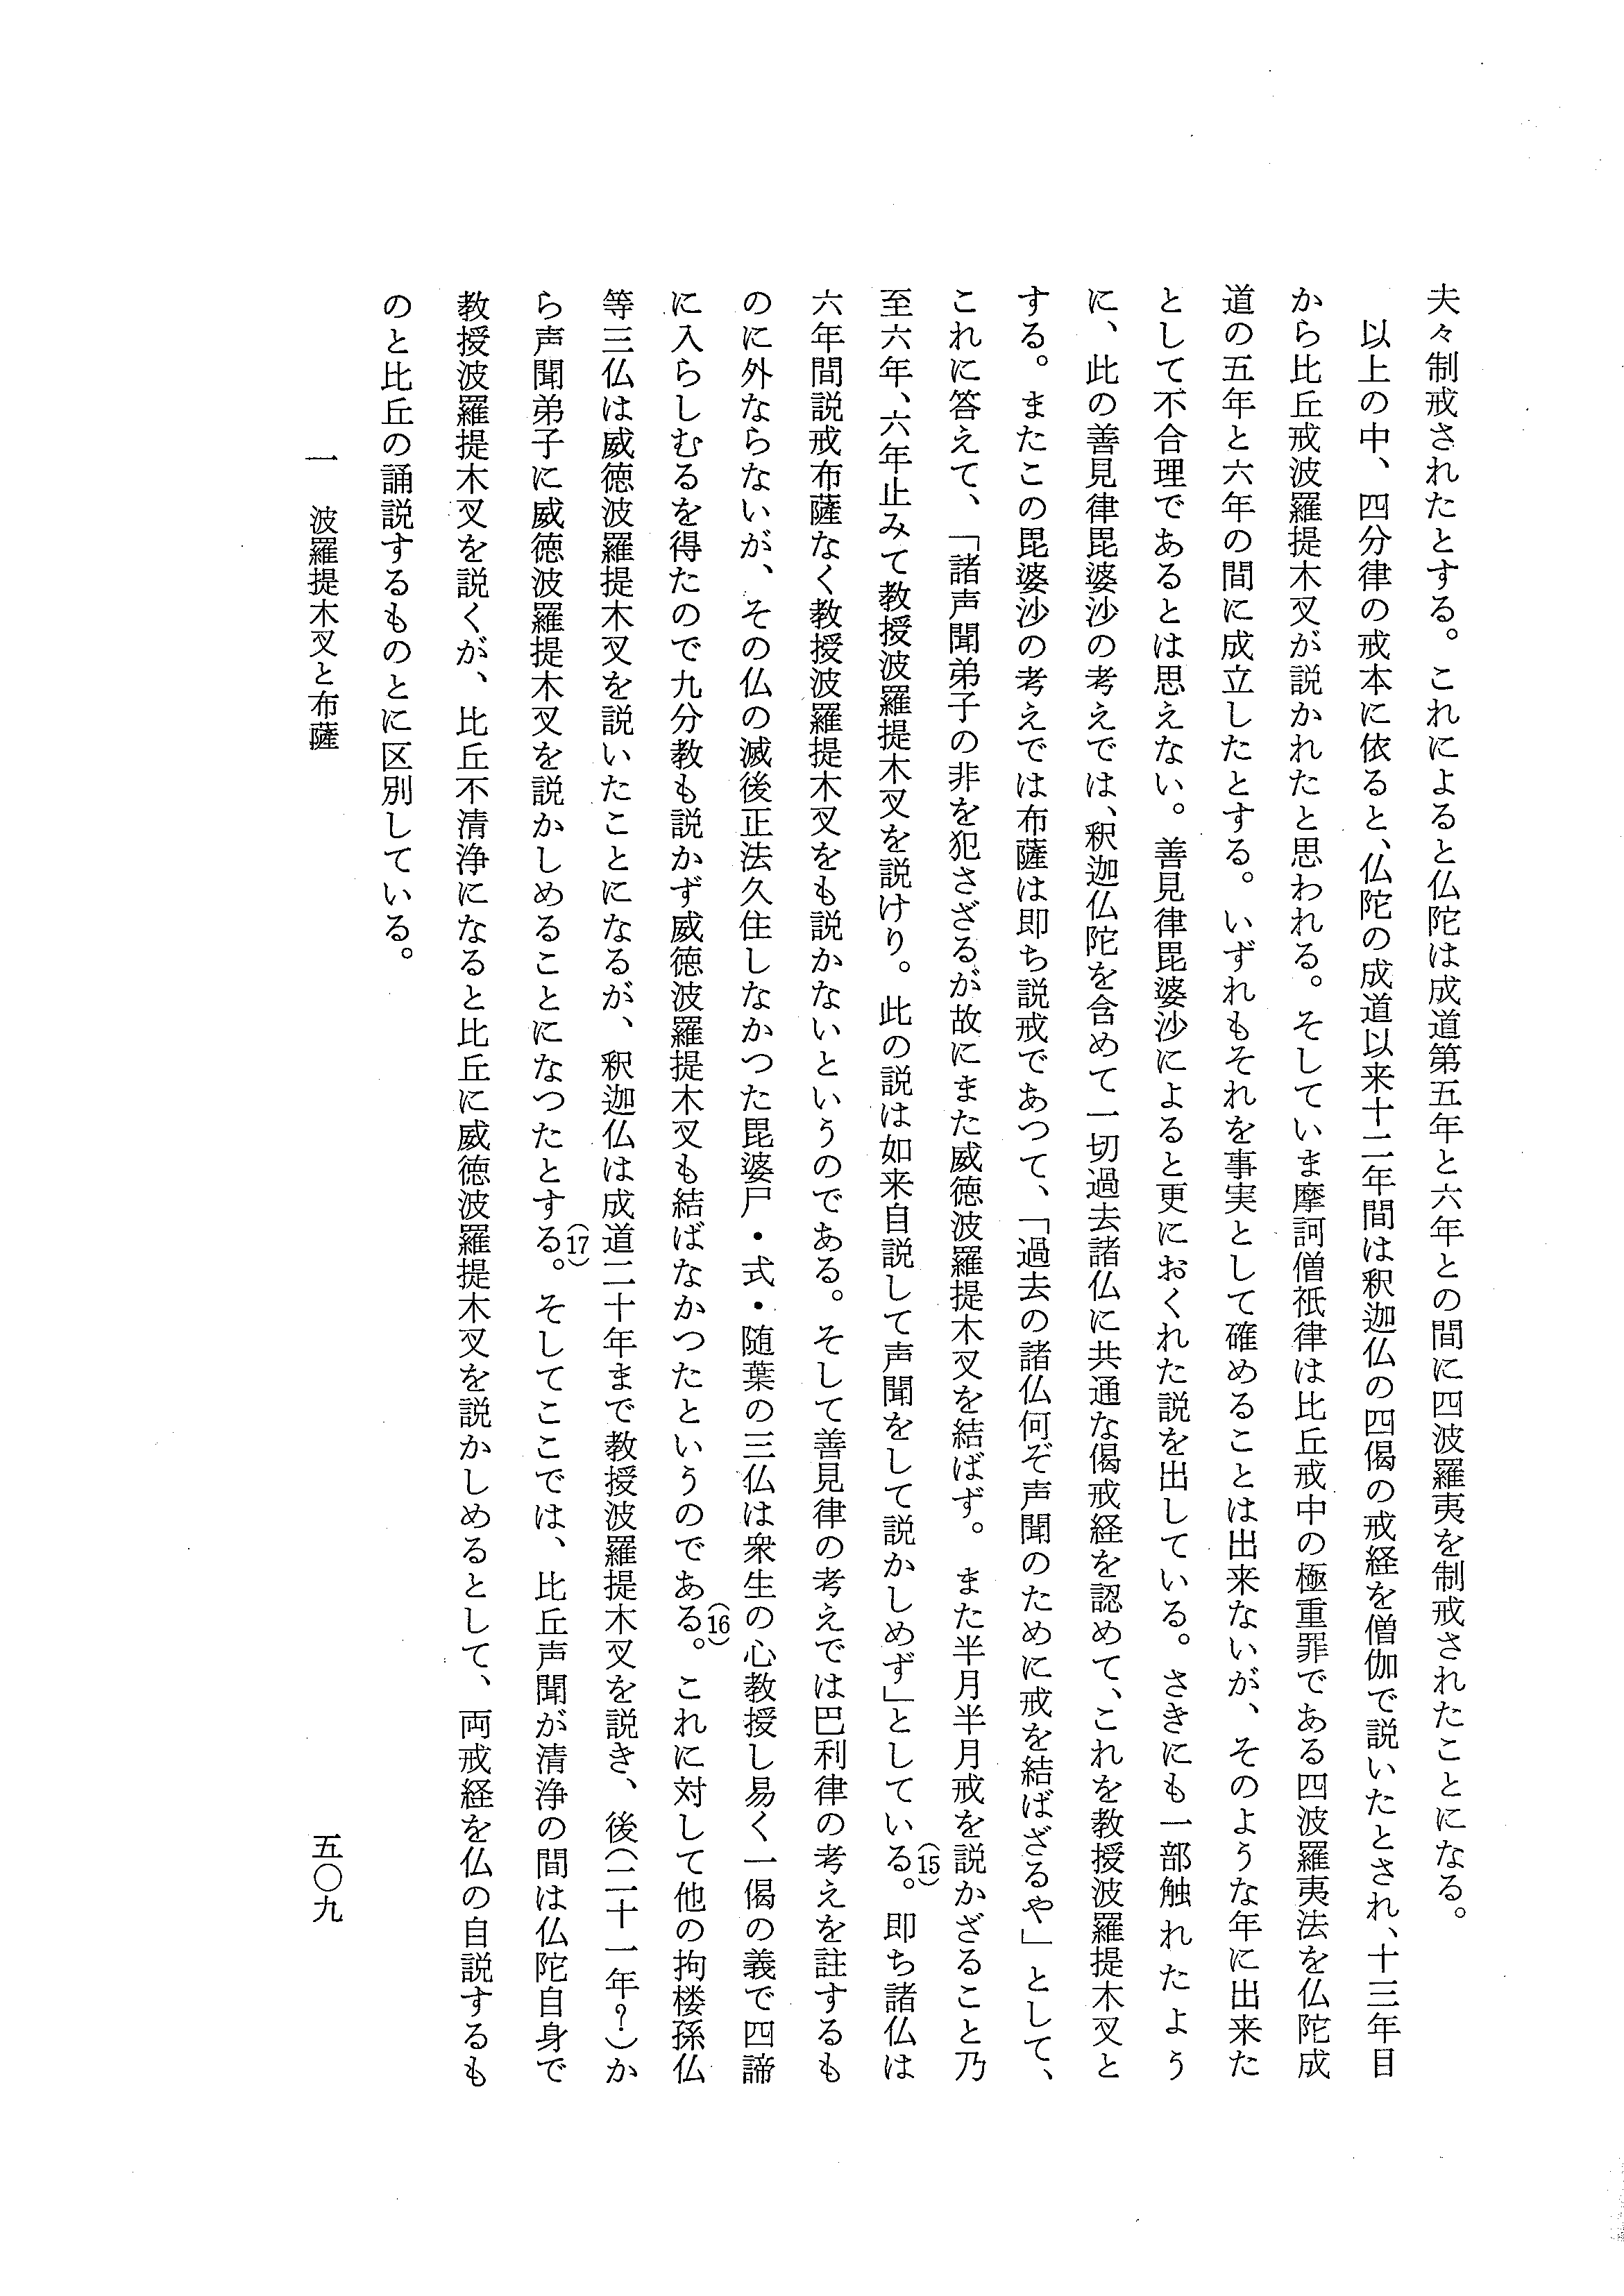 夫々制戒されたとする。これによると仏陀は成道第五年と六年との間に四波羅夷を制戒されたことになる。
以上の中、四分律の戒本に依ると、仏陀の成道以来十二年間は釈迦仏の四偈の戒経を僧伽で説いたとされ、十三年目
から比丘戒波羅提木叉が説かれたと思われる。そしていま摩訶僧祇律は比丘戒中の極重罪である四波羅夷法を仏陀成
道の五年と六年の間に成立したとする。いずれもそれを事実として確めることは出来ないが、そのような年に出来た
として不合理であるとは思えない。善見律毘婆沙によると更におくれた説を出している。さきにも一部触れたよう
に、此の善見律毘婆沙の考えでは、釈迦仏陀を含めて一切過去諸仏に共通な偈戒経を認めて、これを教授波羅提木叉と
する。またこの毘婆沙の考えでは布薩は即ち説戒であつて、「過去の諸仏何ぞ声聞のために戒を結ばざるや」として、
これに答えて、「諸声聞弟子の非を犯さざるが故にまた威徳波羅提木叉を結ばず。また半月半月戒を説かざること乃
至六年、六年止みて教授波羅提木叉を説けり。此の説は如来自説して声聞をして説かしめず」としている。(15)即ち諸仏は
六年間説戒布薩なく教授波羅提木叉をも説かないというのである。そして善見律の考えでは巴利律の考えを註するも
のに外ならないが、その仏の滅後正法久住しなかつた毘婆尸・式・随葉の三仏は衆生の心教授し易く一偈の義で四諦
に入らしむるを得たので九分教も説かず威徳波羅提木叉も結ばなかつたというのである。(16)これに対して他の拘楼孫仏
等三仏は威徳波羅提木叉を説いたことになるが、釈迦仏は成道二十年まで教授波羅提木叉を説き、後(二十一年?)か
ら声聞弟子に威徳波羅提木叉を説かしめることになつたとする。(17)そしてここでは、比丘声聞が清浄の間は仏陀自身で
教授波羅提木叉を説くが、比丘不清浄になると比丘に威徳波羅提木叉を説かしめるとして、両戒経を仏の自説するも
のと比丘の誦説するものとに区別している。
一 波羅提木叉と布薩
五〇九